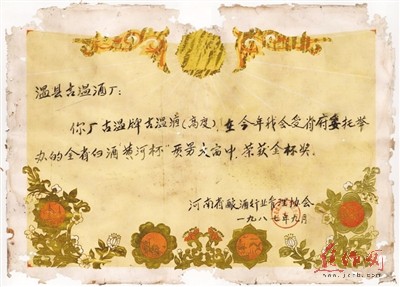 温县古温酒厂：
你厂古温牌古温(高度)，在今年我会受省府委托举
办的全省白酒“黄河杯”质量中，荣获金杯奖。
河南省酿酒行业管理协会
一九八七年九月
焦作网
www.jzrb.com